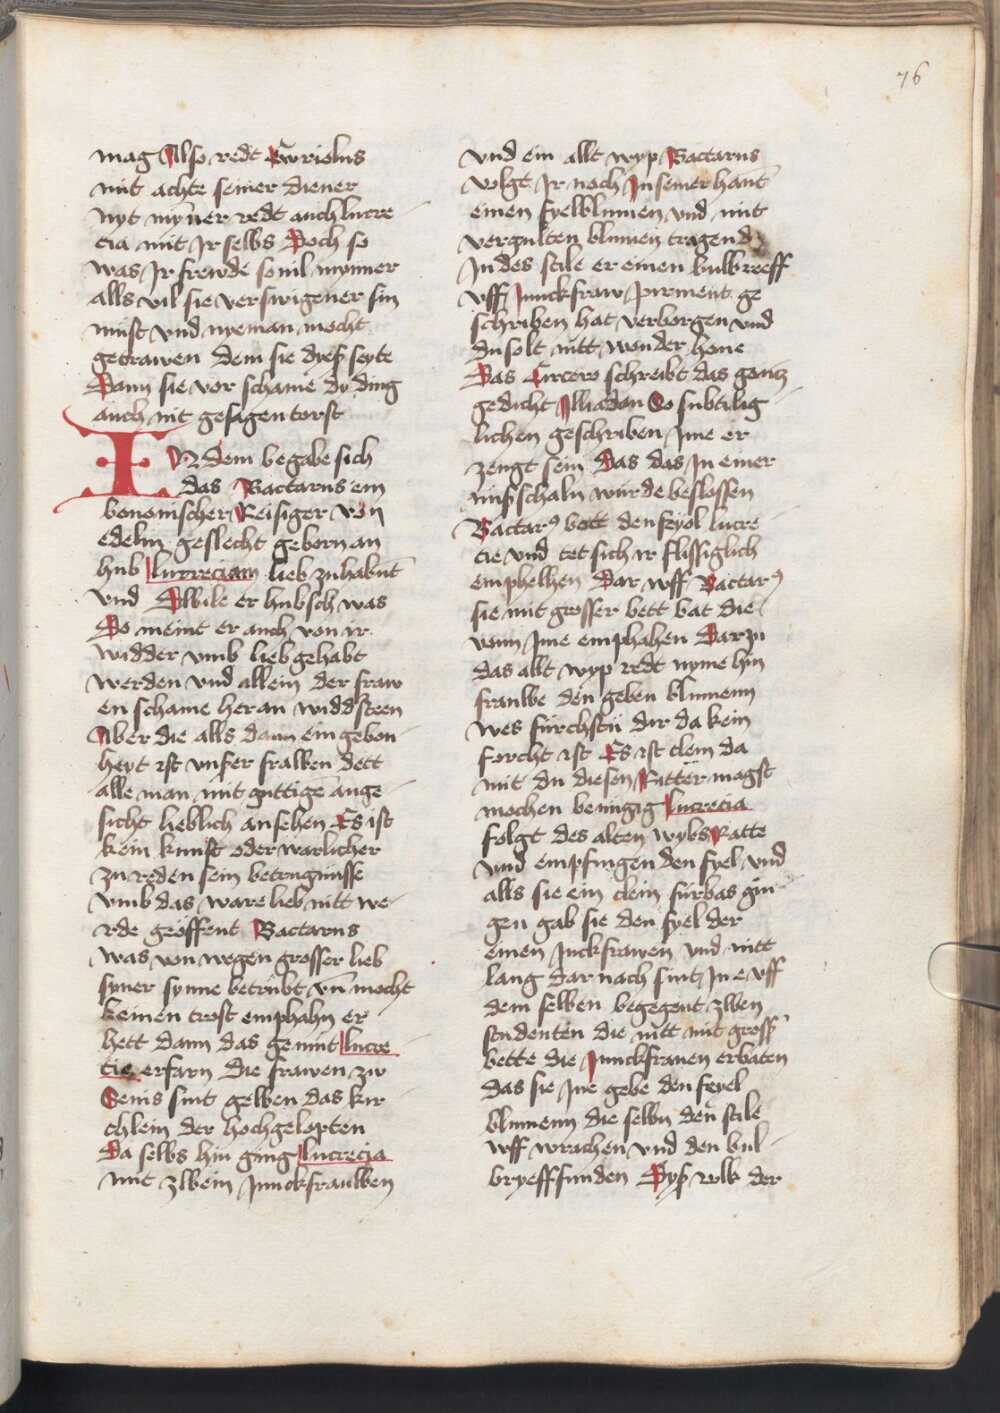 76
mag Also redt Euriolus
mit achte seiner diener
nyt myner redt auch lucre
cia mit Jr selbs Doch so
was Jr frewde so uil mynner
alls vil sie verswigener sin
must vnd nyeman mocht
getrawen dem sie dyeß seyte
Dann sie vor schame die ding
auch nit gesagen torst
IN dem begabe sich
das Bactarus ein
bononischer Reisiger von
edelm geslecht geborn an
hub lucreciam lieb zu habent
vnd Alwile er hubsch was
Do meint er auch von ir
widder vmb lieb gehabt
werden vnd allein der fraw
en schame heran widdsteen
Aber die alls dann ein gebon
heyt ist vnser fralben dett
alle man mit guttige ange
sicht lieblich ansehen Es ist
kein kunst oder warlicher
zu reden sein betrugnisse
vmb das ware lieb nitt we
rde geöffent Bactarus
was von wegen grosser lieb
syner synne betrubt vn mocht
keinen trost emphahn er
hett dann das gemut lucre
tie erfarn Die frawen zu
Senis sint gelben das kir
chlein der hochgelopten
Da selbs hin ging lucrecia
mit zlbein Junckfraulben
vnd ein allt wyp Bactarus
volgt Jr noch Jn seiner hant
einen fyelblumen vnd mit
vergulten blumen tragend
Jn des stile er einen bulbreeff
vff Junckfraw pirment ge
schriben hat verborgen vnd
du solt nitt wonder hone
Das Circero schreibt das gancz
gedicht Jlliadan So subtilig
lichen geschriben Jme er
zengt sein Das das Jn einer
nußschaln wurde beslossen
Bactarꝰ bott den feyol lucre
cie vnd tet sich ir flissiglich
emphelhen Dar wff Bactarꝰ
sie mit grosser bett bat die
vonn Jme emphahen Darzu
das allt wyp redt nyme hin
fraulbe den geben blumenn
wes fürchstu dir da kein
forcht ist Es ist clein da
mit du diesen Ritter magst
mochen benugig lucrecia
folgt des alten wybs Ratte
vnd empfingen den fyel vnd
alls sie ein clein fürbas gin
gen gab sie den fyel der
einen Juckfrawen vnd nitt
lang dar nach sint Jne vff
dem selben begegent zlben
studenten die nitt mit gross
bette die Junckfrauen erbaten
das sie Jne gebe den feyel
blumenn die selbn den stile
wff wrachen vnd den bul
bryeff funden Dyß volk der